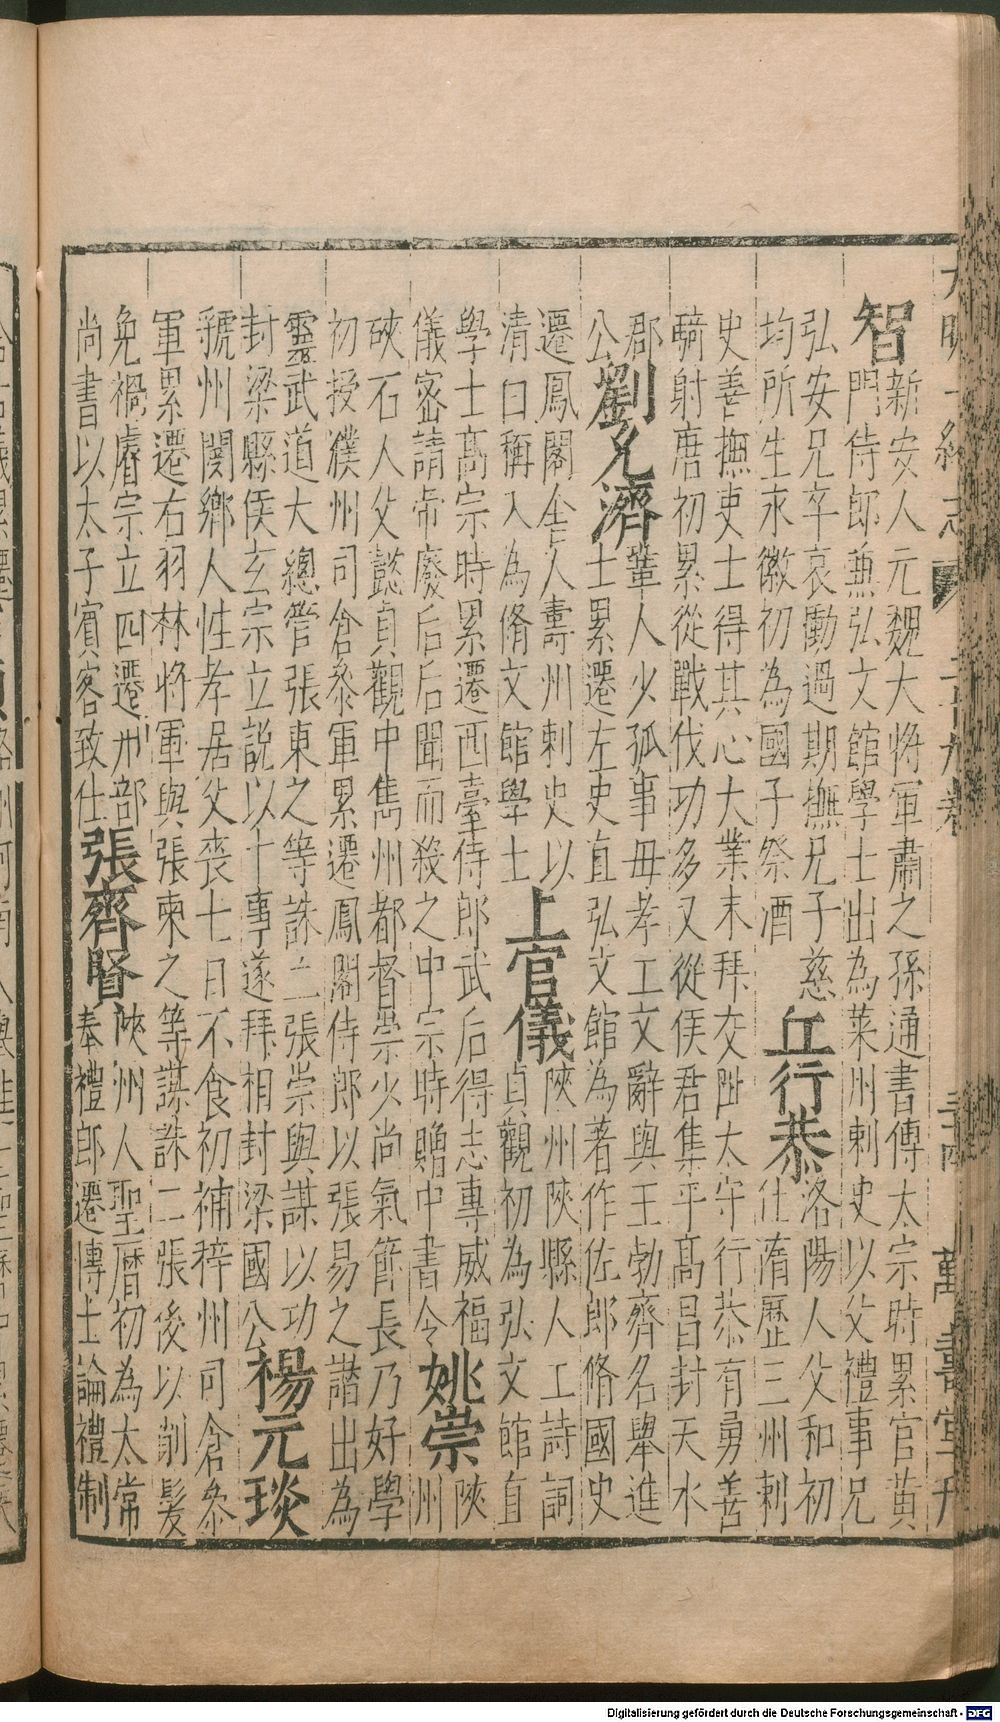 大明一統志 二十九卷 三十四 萬壽堂刊
智 新安人元魏大將軍肅之孫通書傳太宗時累官黃
門侍郎兼弘文館學士出為萊州刺史以父禮事兄
弘安兄卒哀慟過期撫兄子慈
均所生永徽初為國子祭酒 丘行恭 洛陽人父和初
仕隋歷三州刺
史善撫吏士得其心大業末拜交阯太守行恭有勇善
騎射唐初累從戰伐功多又從侯君集平高昌封天水
郡
公 劉允濟 鞏人少孤事母孝工文辭與王勃齊名舉進
士累遷左史直弘文館為著作佐郎脩國史
遷鳳閣舍人壽州刺史以
清白稱入為脩文館學士 上官儀 陝州陝縣人工詩詞
貞觀初為弘文館直
學士高宗時累遷西臺侍郎武后得志專威福
儀密請帝廢后后聞而殺之中宗時贈中書令 姚崇 陝
州
硤石人父懿貞觀中雋州都督崇少尚氣節長乃好學
初授濮州司倉叅軍累遷鳳閣侍郎以張易之譖出為
靈武道大總管張東之等誅二張崇與謀以功
封梁縣侯玄宗立說以十事遂拜相封梁國公 楊元琰
虢州閿鄉人性孝居父喪七日不食初補梓州司倉叅
軍累遷右羽林將軍與張柬之等謀誅二張後以削髮
免禍睿宗立四遷刑部
尚書以太子賓客致仕 張齊賢 陝州人聖曆初為太常
奉禮郎遷博士論禮制
Digitalisierung gefördert durch die Deutsche Forschungsgemeinschaft - DFG